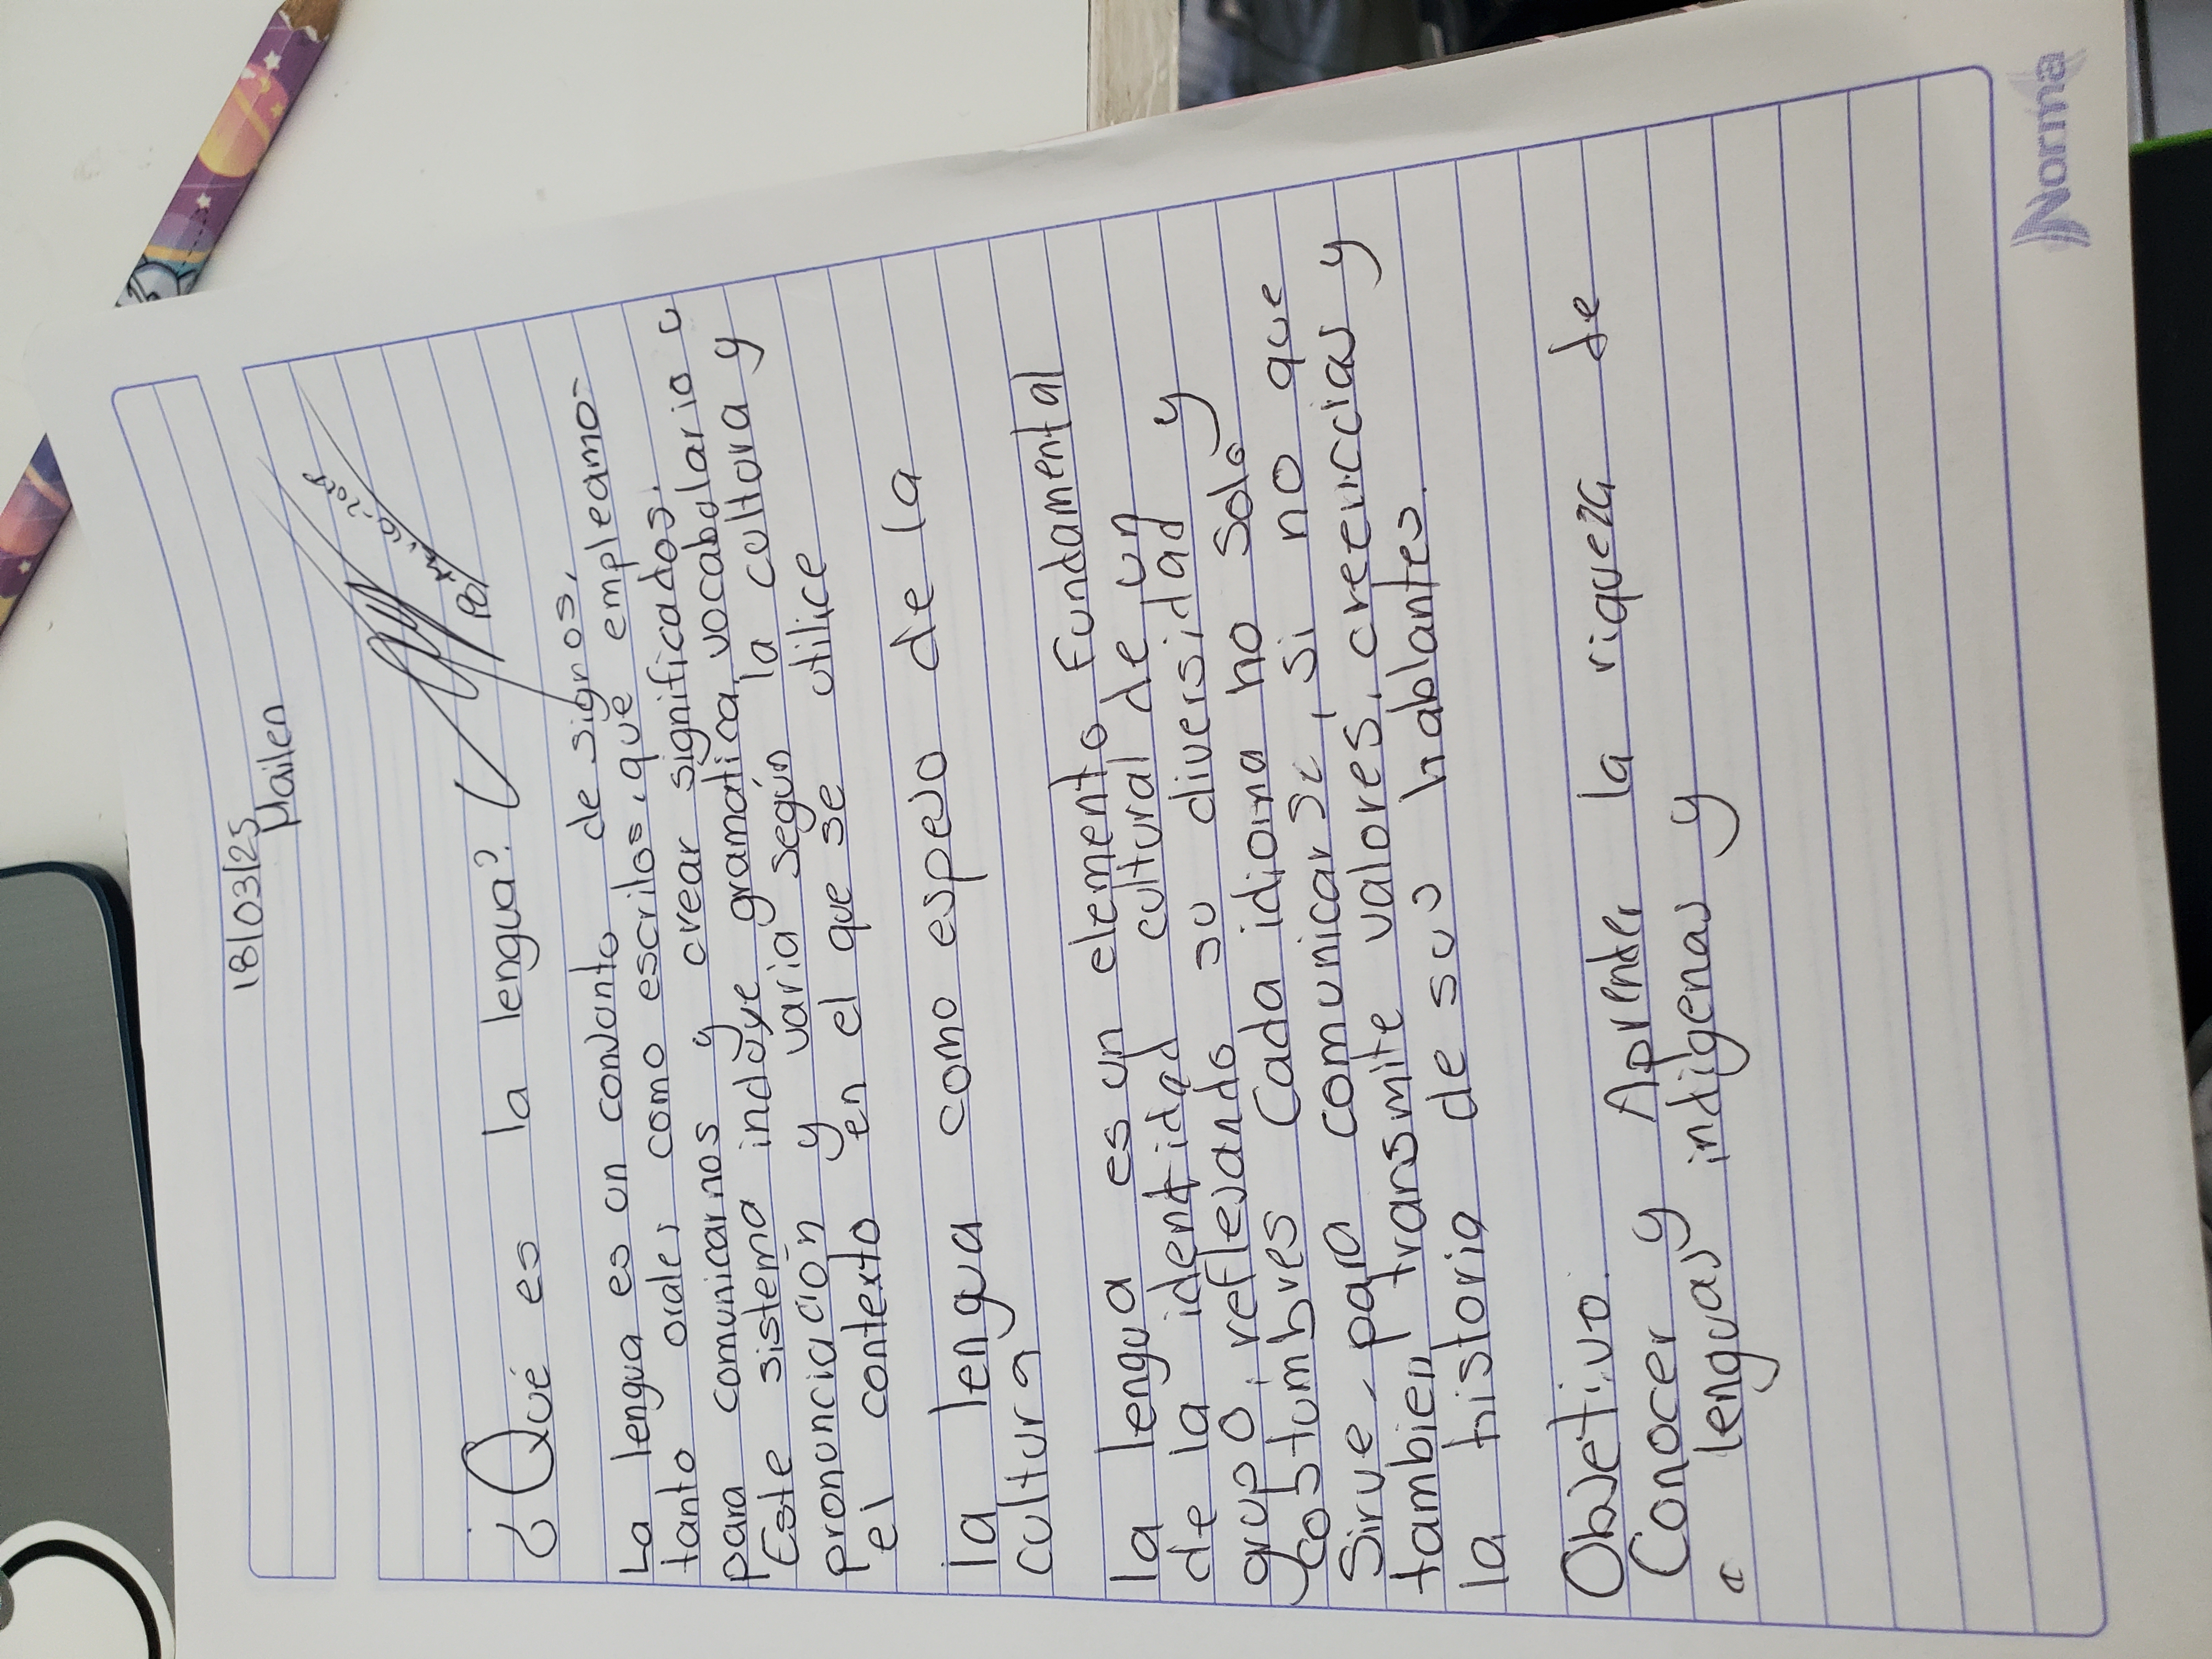 18/03/25
Mailen
¿Qué es la lengua?
La lengua es un conJunto de signos,
tanto orales como escritos, que empleamos
para comunicarnos y crear significados.
Este sistema incluye gramatica, vocabulario u
pronunciación y varia según la cultura y
el contexto en el que se utilice
la lengua como espeJo de la
cultura
la lengua es un elemento Fundamental
de la identidad cultural de un
grupo, refleJando su diversidad y
costumbres Cada idioma no solo
Sirve para comunicarse, si no que
tambien transmite valores, creencias y
la historia de sus hablantes.
ObJetivo.
Conocer y Aprender la riqueza de
lenguas indigenas y
Norma